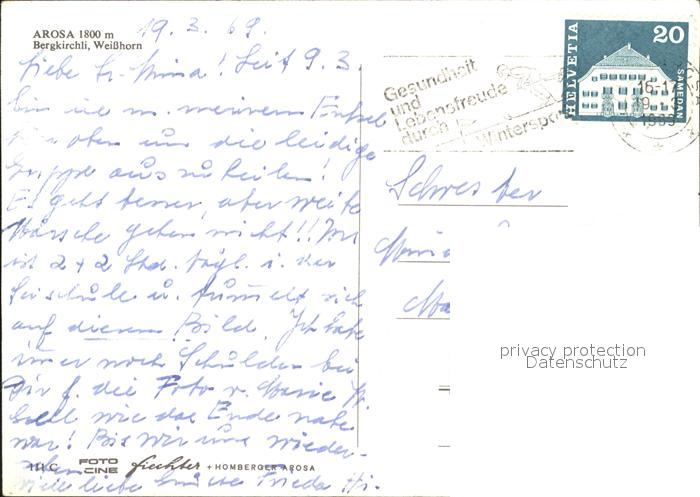 AROSA 1800 m
Bergkirchli, Weißhorn
19. 3. 69.
Liebe Sr. Mina! Seit 9. 3.
bin ich m. meinem Enkel
hier oben um die leidige
Grippe auszuheilen!
Es geht besser, aber weite
Märsche gehen nicht!!
ist 2 + 2 Std. tägl. i. der
Skischule u. tummelt sich
auf diesem Bild. Ich habe
immer noch Schulden bei
Dir f. die Foto v. Marie
wie das Ende nahe
war! Bis wir uns wieder-
sehen
viele liebe Grüsse Frieda Hi.
111 C
FOTO
CINE
fiechter + HOMBERGER AROSA
Gesundheit
und
Lebensfreude
durch
Wintersport
HELVETIA
20
SAMEDAN
16-17
19
1969
Schwester
privacy protection
Datenschutz